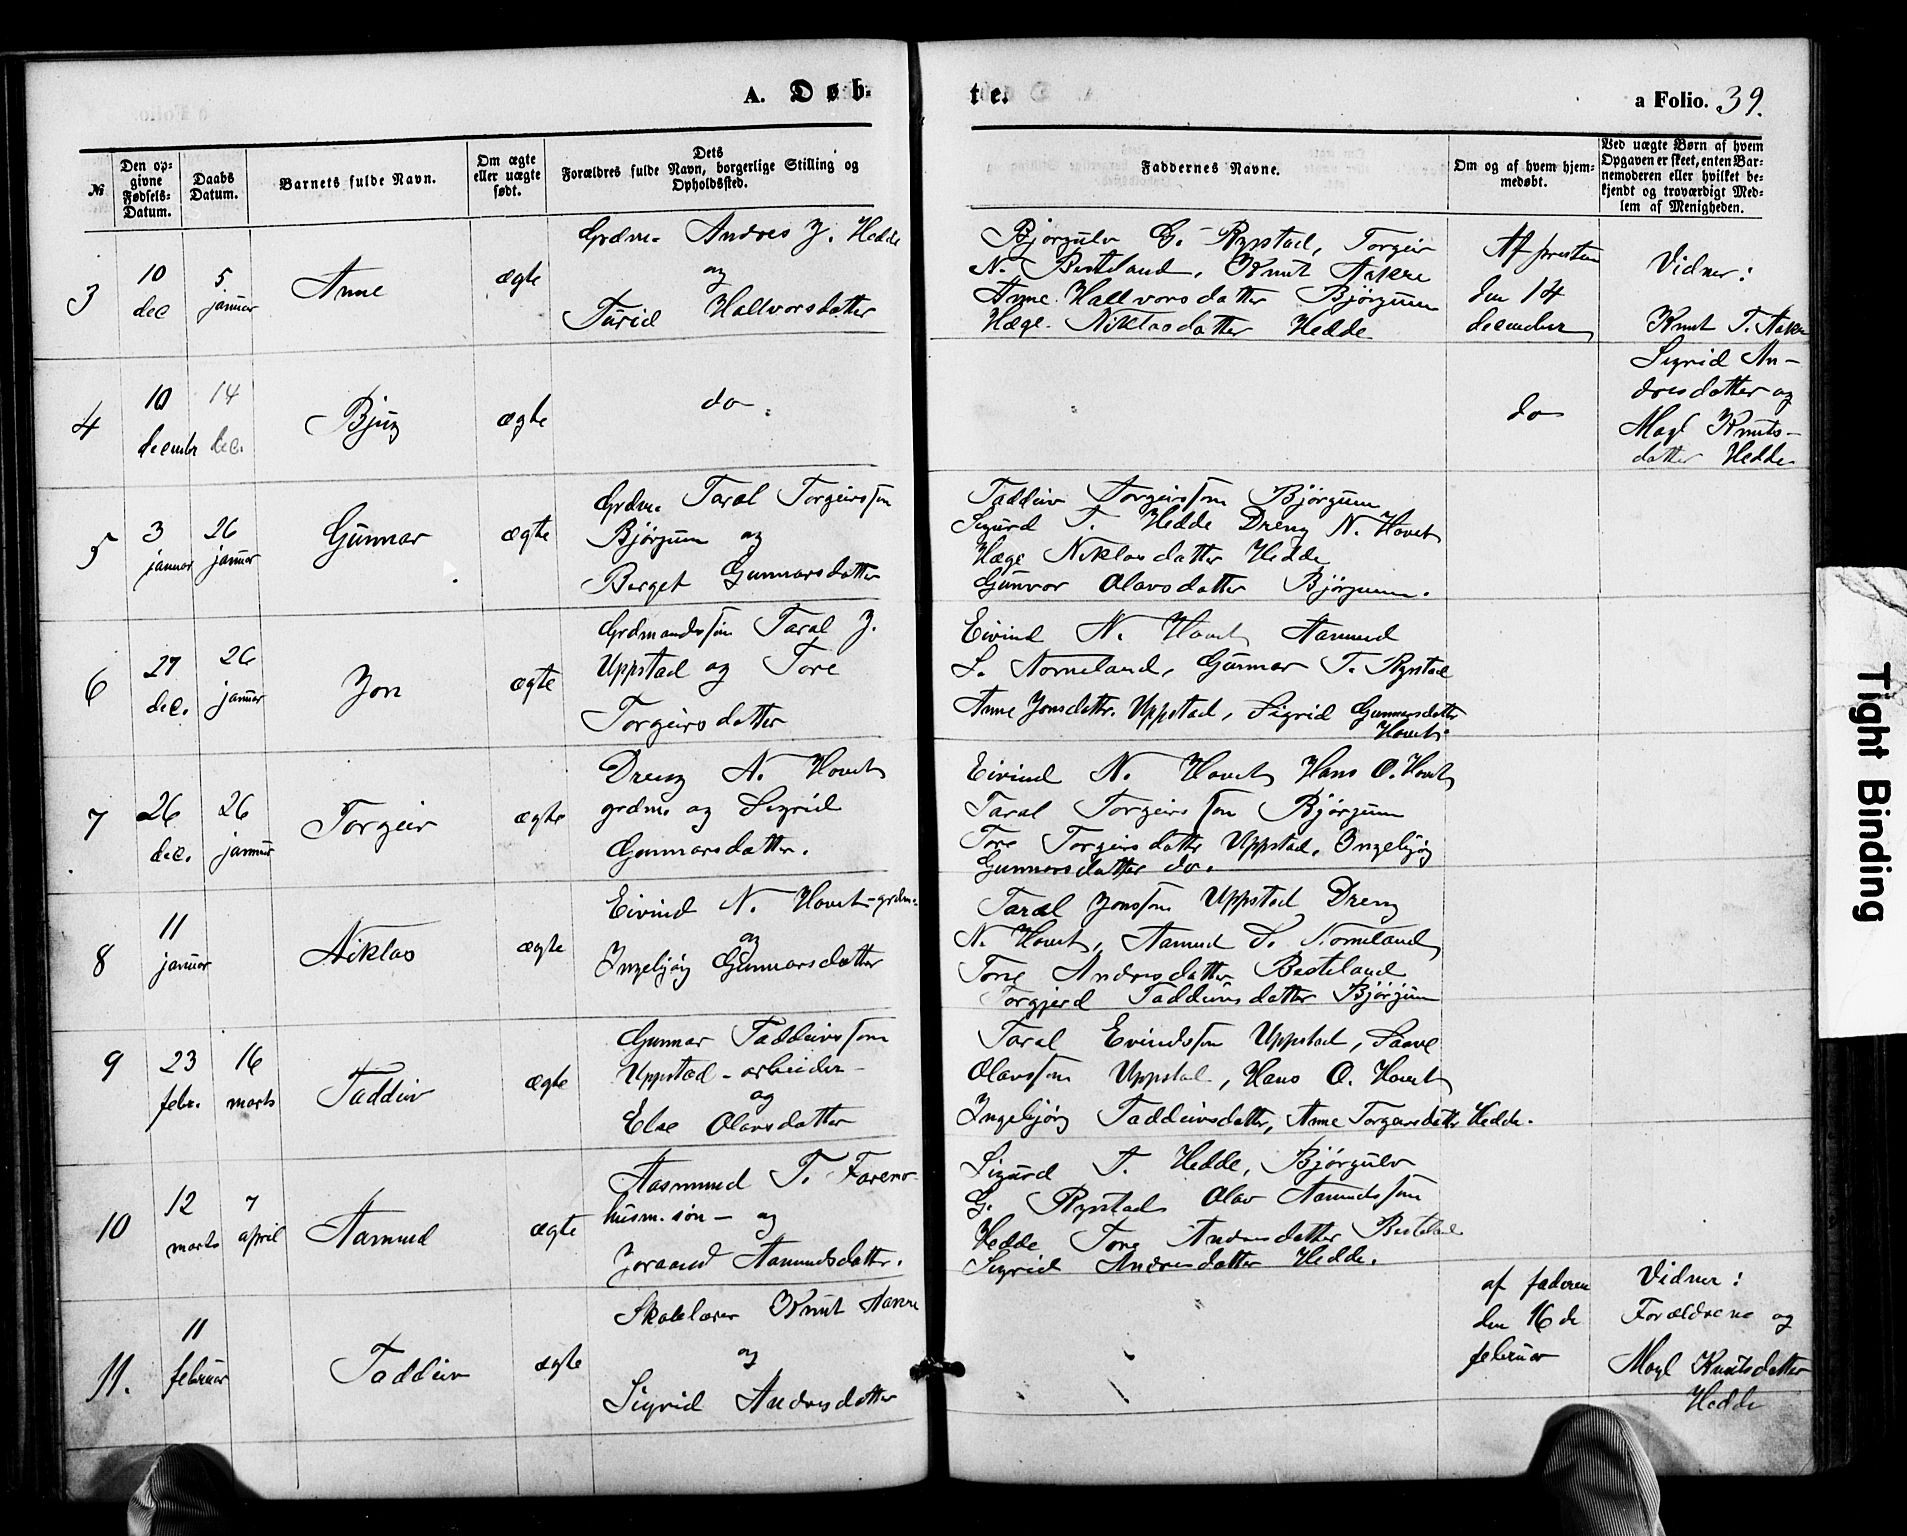 A. Døb-
te.
a Folio. 39.
№
Den op-
givne
Fødsels-
Datum.
Daabs
Datum.
Barnets fulde Navn.
Om ægte
eller uægte
født.
Dets
Forældres fulde Navn, borgerlige Stilling og
Opholdssted.
Faddernes Navne.
Om og af hvem hjem-
medøbt.
Ved uægte Børn af hvem
Opgaven er skeet, enten Bar-
nemoderen eller hvilket be-
kjendt og troværdigt Med-
lem af Menigheden.
3
10
dec
5
januar
Anne
ægte
Grdm. Andres J. Hedde
og
Turid Hallvorsdatter
Bjørgulv G. Rystad, Torgeir
N. Besteland, Knut Aakre
Anne Hallvorsdatter Bjørgum
Hæge Niklosdatter Hedde
Af presten
den 14
december
Vidner:
Knut T. Aakre
Sigrid An-
dresdatter og
Magl Knuts-
datter Hedde
4
10
decembr
14
dec.
Bjug
ægte
do
do
5
3
januar
26
januar
Gunnar
ægte
Grdm. Taral Torgeirsson
Bjørgum og
Berget Gunnarsdatter
Taddeiv Torgeirsson Bjørgum
Sigurd T. Hedde Dreng N. Hovet
Hæge Niklosdatter Hedde
Gunvor Olavsdatter Bjørgum.
6
27
dec.
26
januar
Jon
ægte
Grdmandssøn Taral J.
Uppstad og Tore
Torgeirsdatter
Eivind N. Hovet Aamund
S. Nomeland, Gunnar T. Rystad
Anne Jonsdattr. Uppstad, Sigrid Gunnarsdatter
Hovet.
7
26
dec.
26
januar
Torgeir
ægte
Dreng N. Hovet
grdm. og Sigrid
Gunnarsdatter.
Eivind N. Hovet Hans O. Hovet
Taral Torgeirsson Bjørgum
Tore Torgeirsdatter Uppstad. Ingebjørg
Gunnarsdatter do.
8
11
januar
Niklos
ægte
Eivind N. Hovet - grdm.
og
Ingebjørg Gunnarsdatter
Taral Jonsson Uppstad Dreng
N. Hovet, Aamund S. Nomeland
Tone Andresdatter Besteland
Torgjerd Taddeivsdatter Bjørgum
9
23
febr.
16
marts
Taddeiv
ægte
Gunnar Taddeivsson
Uppstad - arbeider -
og
Else Olavsdatter
Taral Evindsson Uppstad, Saave
Olavsson Uppstad, Hans O. Hovet
Ingebjørg Taddeivsdatter, Anne Torgeirsdatter Hedde.
10
12
marts
7
april
Aamund
ægte
Aasmund T.
husm. søn - og
Joraand Aamundsdatter.
Sigurd T. Hedde, Bjørgulv
G. Rystad Olav Aamundsson
Hedde Tone Andresdatter Besteland
Sigrid Andresdatter Hedde.
11.
11
februar
Taddeiv
ægte
Skolelærer Knut Aakre
og
Sigrid Andresdatter
af faderen
den 16de
februar
Vidner:
Forældrene og
Magl Knutsdatter
Hedde
Tight Binding